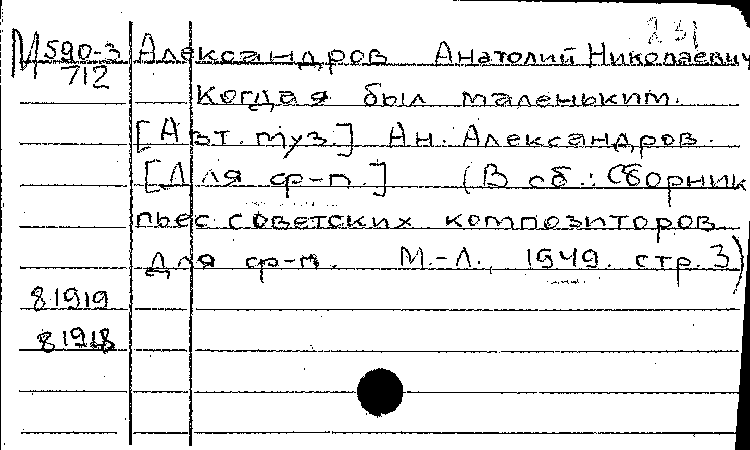 231
М 590-3 Александров Анатолий Николаевич
712
Когда я был маленьким.
[Авт. муз.] Ан. Александров.
[Для ф-п.] (В сб.: Сборник
пьес советских композиторов
для ф-п. М.-Л., 1949. стр. 3)
81919
81918